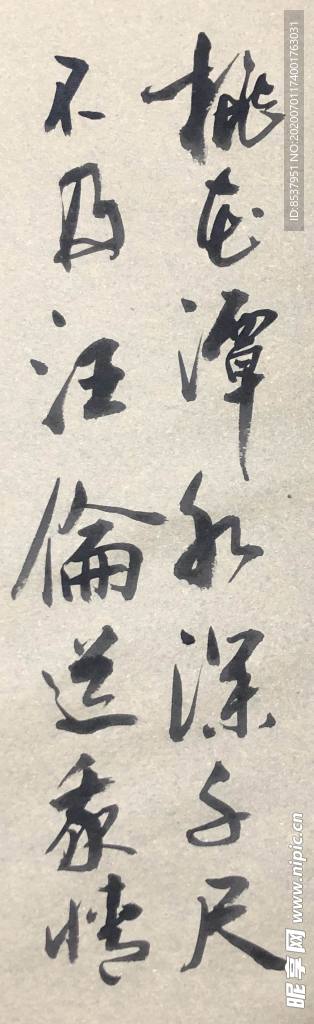 桃花潭水深千尺
不及汪倫送我情
ID:8537951 NO:20200701174001763031
昵享网 www.nipic.cn